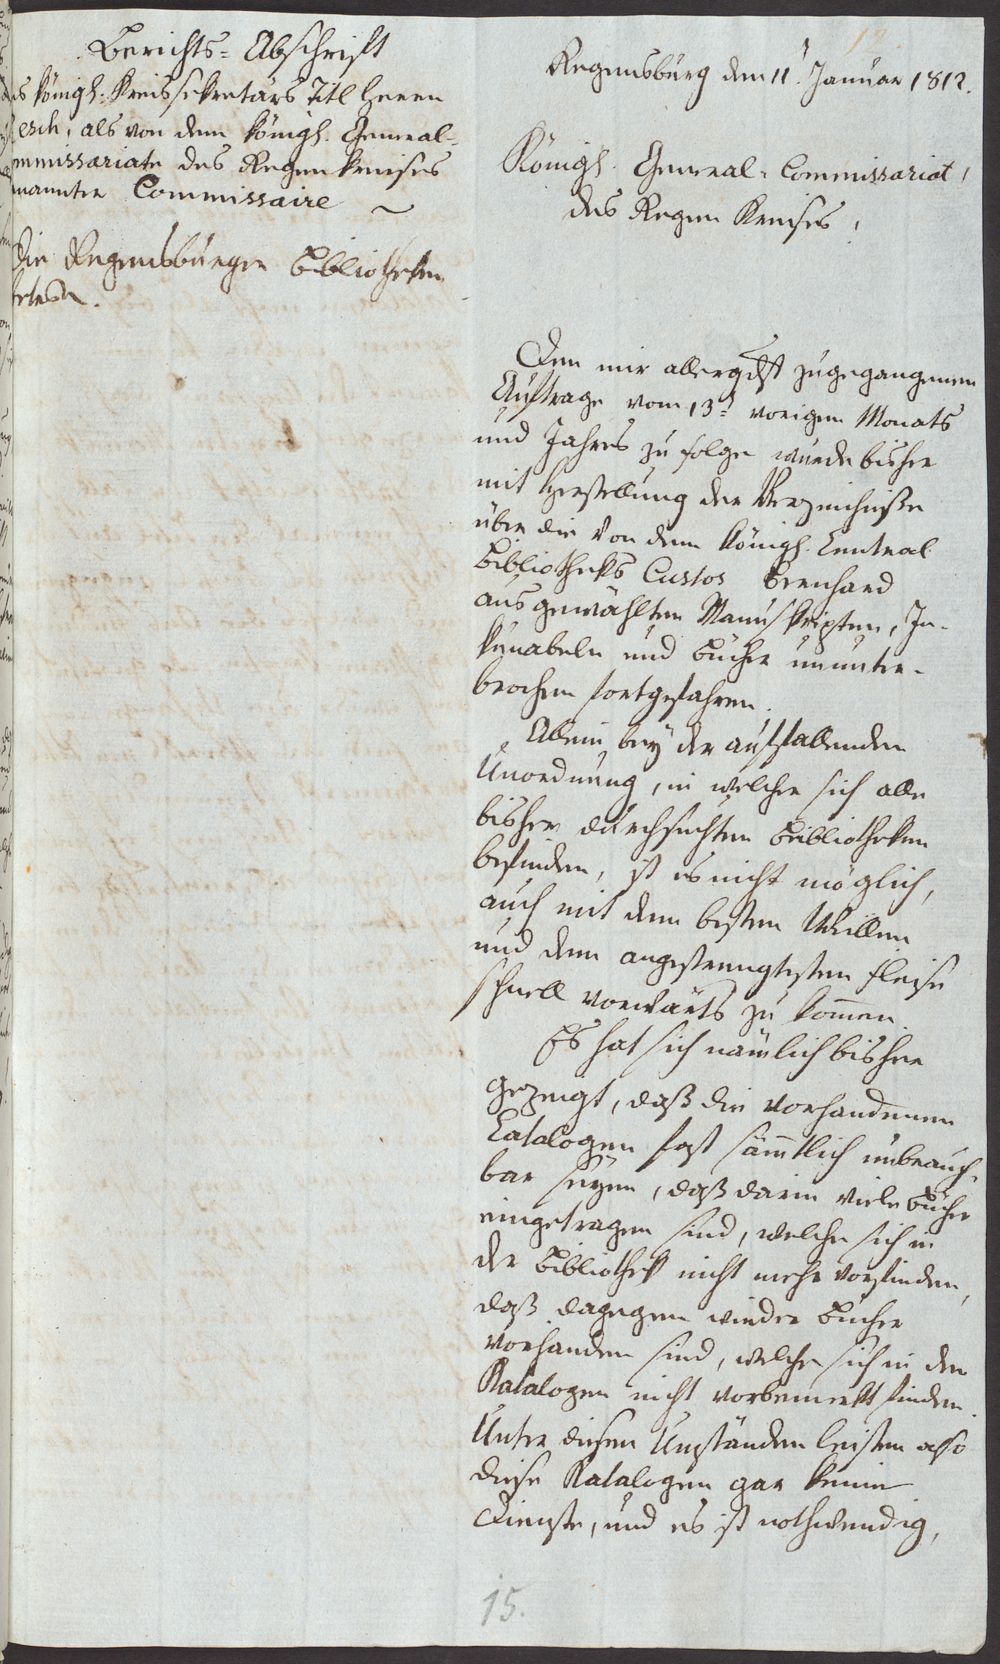 Berichts-Abschrift
des königl. Kreissekretärs Titl Herrn
esch, als von dem königl. General-
ommissariate des Regenkreises
nannter Commissaire
Die Regensburger Bibliotheken
betrf.
12.
Regensburg den 11t Januar 1812.
Königl. General-Commissariat,
des Regen Kreises!
Dem mir allergdst zugegangenen
Auftrage vom 13t vorigen Monats
und Jahres zu folge wurde bisher
mit Herstellung der Verzeichniße
über die von dem königl. Central
Bibliotheks Custos Bernhard
ausgewählten Manuskripten, In-
kunabeln und Bücher ununter-
brochen fortgefahren.
Allein bey der auffallenden
Unordnung, in welcher sich alle
bisher durchsuchten Bibliotheken
befinden, ist es nicht möglich,
auch mit dem besten Willen
und dem angestrengtesten Fleiße
schnell vorwärts zu kommen.
Es hat sich nämlich bisher
gezeigt, daß die vorhandenen
Catalogen fast sämtlich unbrauch-
bar seyen, daß darin viele Bücher
eingetragen sind, welche sich in
der Bibliothek nicht mehr vorfinden,
daß dagegen wieder Bücher
vorhanden sind, welche sich in den
Katalogen nicht vorbemerkt finden.
Unter diesen Umständen leisten also
diese Katalogen gar keine
Dienste, und es ist nothwendig,
15.